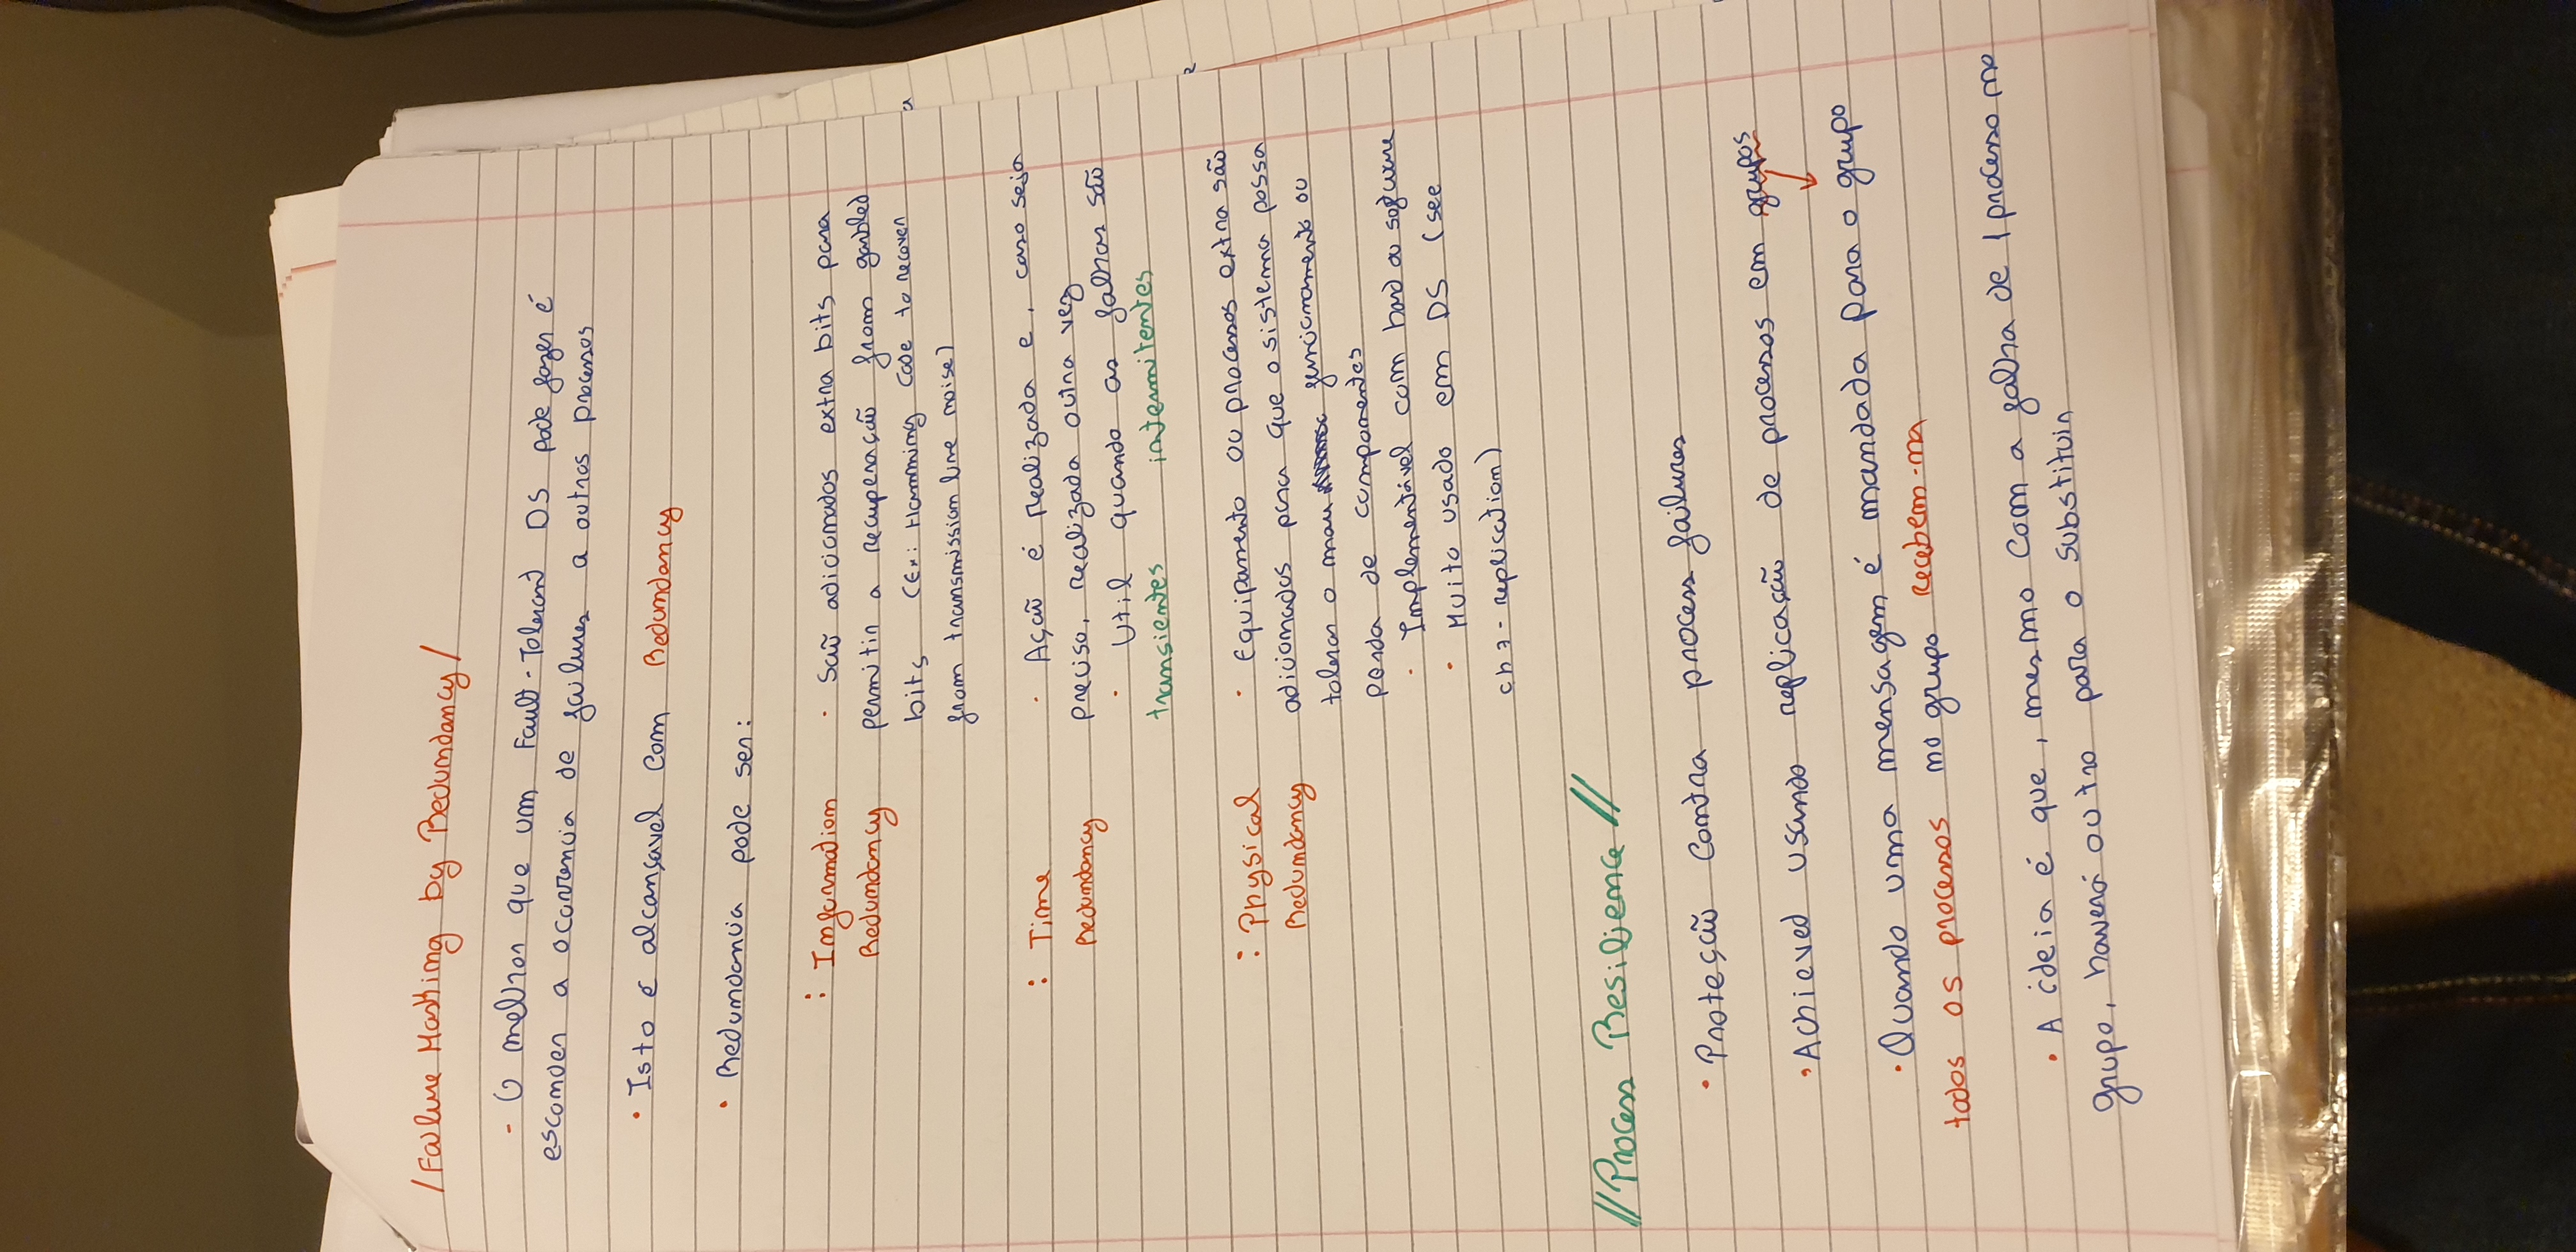 /Failure Masking by Redundancy/
- O melhor que um Fault-Tolerant DS pode fazer é
esconder a ocorrencia de failures a outros processos
• Isto é alcansavel com Redundancy
• Redundancia pode ser:
: Information Redundancy
• São adicionados extra bits para
permitir a recuperação from garbled
bits (Ex: Hamming Code to recover
from transmission line noise)
: Time Redundancy
• Ação é realizada e, caso seja
preciso, realizada outra vez
• Util quando as falhas são
transientes intermitentes
: Physical Redundancy
• Equipamento ou processos extra são
adicionados para que o sistema possa
tolerar o mau funcionamento ou
perda de componentes
• Implementável com hard ou software
• Muito usado em DS (see
ch 7 - replication)
// Process Resilience //
• Proteção contra process failures
• Achieved usando replicação de processos em grupos
• Quando uma mensagem é mandada para o grupo
todos os processos no grupo recebem-na
• A ideia é que, mesmo com a falha de 1 processo no
grupo, haverá outro para o substituir